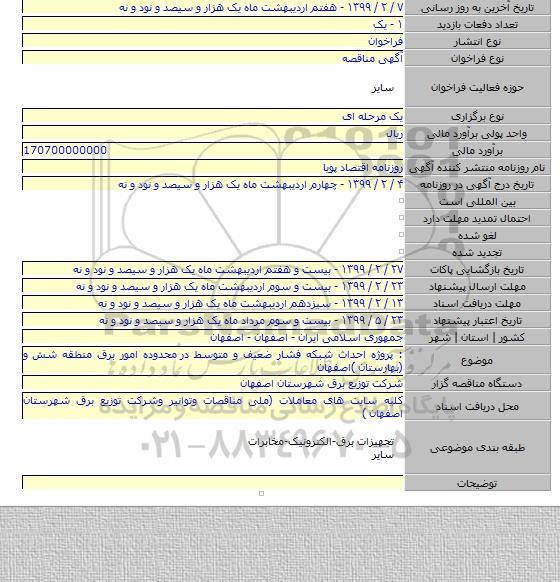 تاریخ آخرین به روز رسانی ۷ / ۲ / ۱۳۹۹ - هفتم اردیبهشت ماه یک هزار و سیصد و نود و نه
تعداد دفعات بازدید ۱ - یک
نوع انتشار فراخوان
نوع فراخوان آگهی مناقصه
حوزه فعالیت فراخوان سایر
نوع برگزاری یک مرحله ای
واحد پولی برآورد مالی ریال
برآورد مالی 170700000000
نام روزنامه منتشر کننده آگهی روزنامه اقتصاد پویا
تاریخ درج آگهی در روزنامه ۴ / ۲ / ۱۳۹۹ - چهارم اردیبهشت ماه یک هزار و سیصد و نود و نه
بین المللی است
احتمال تمدید مهلت دارد
لغو شده
تجدید شده
تاریخ بازگشایی پاکات ۲۷ / ۲ / ۱۳۹۹ - بیست و هفتم اردیبهشت ماه یک هزار و سیصد و نود و نه
مهلت ارسال پیشنهاد ۲۳ / ۲ / ۱۳۹۹ - بیست و سوم اردیبهشت ماه یک هزار و سیصد و نود و نه
مهلت دریافت اسناد ۱۳ / ۲ / ۱۳۹۹ - سیزدهم اردیبهشت ماه یک هزار و سیصد و نود و نه
تاریخ اعتبار پیشنهاد ۲۳ / ۵ / ۱۳۹۹ - بیست و سوم مرداد ماه یک هزار و سیصد و نود و نه
کشور | استان | شهر جمهوری اسلامی ایران - اصفهان - اصفهان
موضوع : پروژه احداث شبکه فشار ضعیف و متوسط در محدوده امور برق منطقه شش و
(بهارستان )اصفهان
دستگاه مناقصه گزار شرکت توزیع برق شهرستان اصفهان
محل دریافت اسناد کلیه سایت های معاملات (ملی مناقصات وتوانیر وشرکت توزیع برق شهرستان
اصفهان )
طبقه بندی موضوعی تجهیزات برق-الکترونیک-مخابرات
سایر
توضیحات
پایگاه اطلاع رسانی مناقصه ومزایده
۰۲۱-۸۸۳۴۹۶۷۰-۵